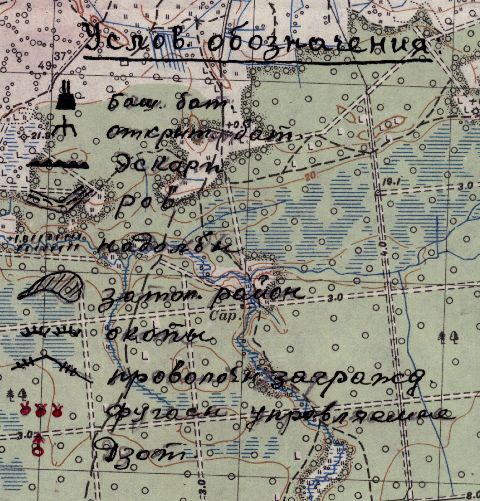 Услов. обозначения
49 37
Баш. бат.
открыт. бат.
Эскарп
ров
надолбы
затоп. район
окопы
проволочн. загражд.
фугасы управляемые
Дзот
20
19.1
3.0
4.0
3.0
Сар.
4
4
3.0
8.0